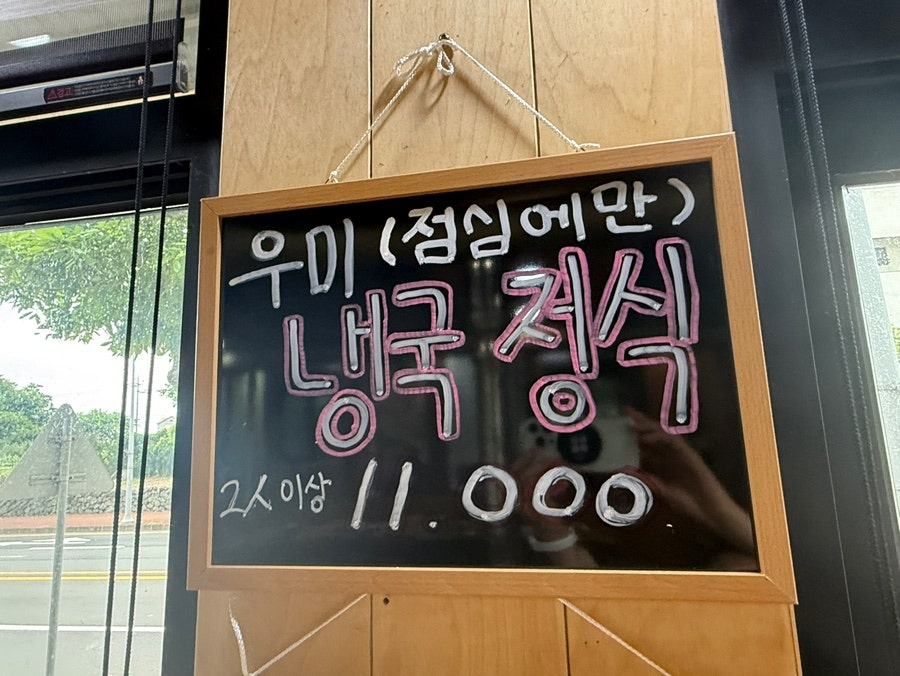 우미 (점심에만)
냉국 정식
2人 이상 11.000